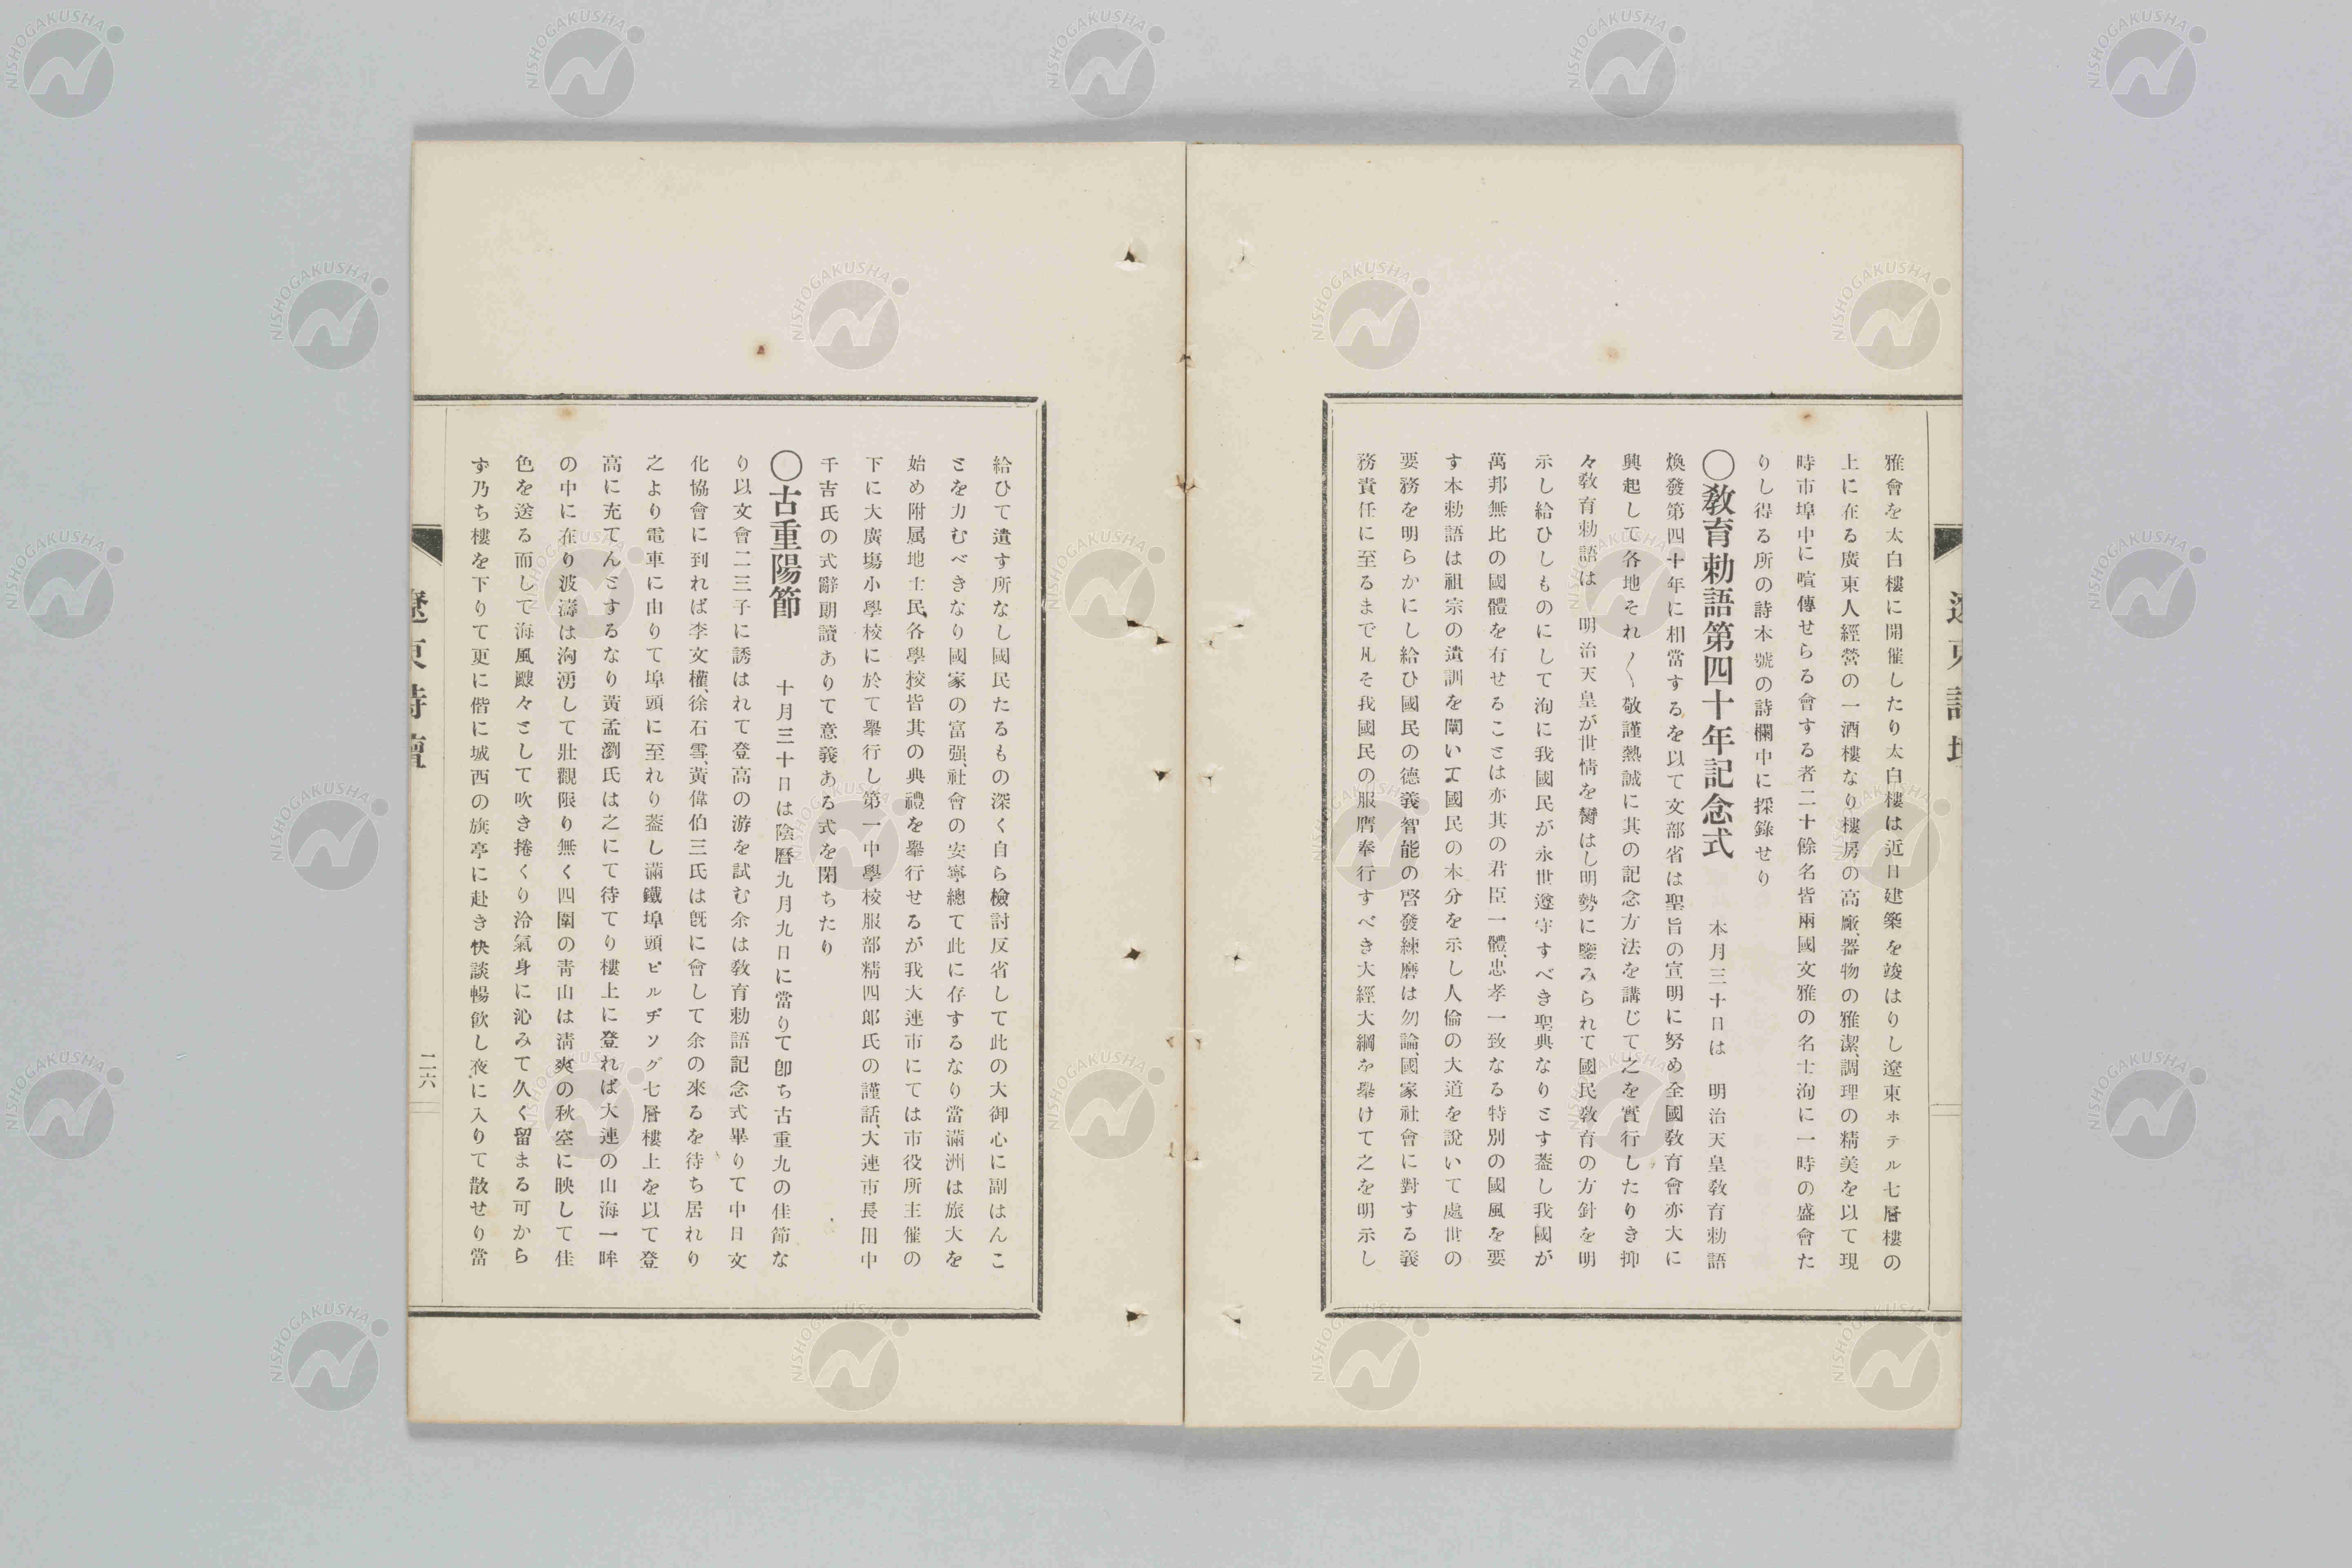 雅會を太白樓に開催したり太白樓は近日建築を竣はりし遼東ホテル七層樓の
上に在る廣東人經營の一酒樓なり樓房の高厰、器物の雅潔、調理の精美を以て現
時市埠中に喧傳せらる會する者二十餘名皆兩國文雅の名士洵に一時の盛會た
りし得る所の詩本號の詩欄中に採錄せり
〇敎育勅語第四十年記念式 本月三十日は 明治天皇敎育勅語
煥發第四十年に相當するを以て文部省は聖旨の宣明に努め全國敎育會亦大に
興起して各地それ〱敬謹熱誠に其の記念方法を講じて之を實行したりき抑
々敎育勅語は 明治天皇が世情を嚮はし明勢に鑒みられて國民敎育の方針を明
示し給ひしものにして洵に我國民が永世遵守すべき聖典なりとす蓋し我國が
萬邦無比の國體を有せることは亦其の君臣一體、忠孝一致なる特別の國風を要
す本勅語は祖宗の遺訓を闡いて國民の本分を示し人倫の大道を說いて處世の
要務を明らかにし給ひ國民の德義智能の啓發練磨は勿論、國家社會に對する義
務責任に至るまで凡そ我國民の服膺奉行すべき大經大綱を擧けて之を明示し
給ひて遺す所なし國民たるもの深く自ら檢討反省して此の大御心に副はんこ
とを力むべきなり國家の富强、社會の安寧總て此に存するなり當滿洲は旅大を
始め附属地士民、各學校皆其の典禮を擧行せるが我大連市にては市役所主催の
下に大廣塲小學校に於て擧行し第一中學校服部精四郎氏の謹話、大連市長田中
千吉氏の式辭朗讀ありて意義ある式を閉ちたり
〇古重陽節 十月三十日は陰曆九月九日に當りて卽ち古重九の佳節な
り以文會二三子に誘はれて登高の游を試む余は敎育勅語記念式畢りて中日文
化協會に到れば李文權、徐石雪、黃偉伯三氏は旣に會して余の來るを待ち居れり
之より電車に由りて埠頭に至れり蓋し滿鐵埠頭ビルヂング七層樓上を以て登
高に充てんとするなり黃孟瀏氏は之にて待てり樓上に登れば大連の山海一眸
の中に在り波濤は洶湧して壯觀限り無く四圍の靑山は淸爽の秋空に映して佳
色を送る而して海風颼々として吹き捲くり冷氣身に沁みて久く留まる可から
ず乃ち樓を下りて更に偕に城西の旗亭に赴き快談暢飮し夜に入りて散せり當
遼東詩壇
二六